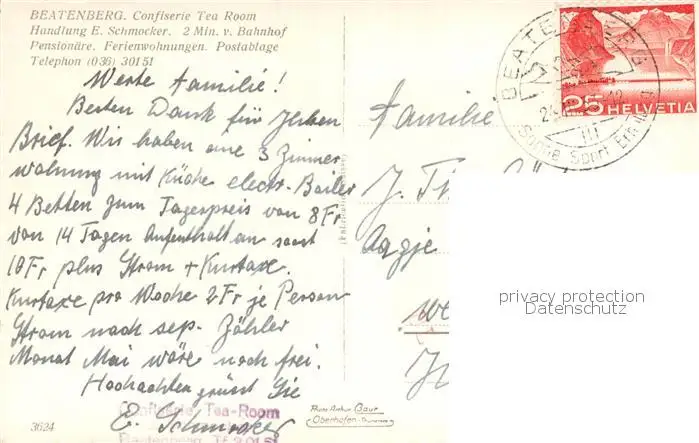 BEATENBERG. Confiserie Tea Room
Handlung E. Schmocker. 2 Min. v. Bahnhof
Pensionäre. Ferienwohnungen. Postablage
Telephon (036) 30151
Werte Familie!
Besten Dank für Ihren
Brief. Wir haben eine 3 Zimmer
wohnung mit Küche electr. Boiler
4 Betten zum Tagespreis von 8 Fr
von 14 Tagen Aufenthalt an sonst
10 Fr plus Strom + Kurtaxe.
Kurtaxe pro Woche 2 Fr je Person
Strom nach sep. Zähler
Monat Mai wäre noch frei.
Hochachtend grüsst Sie
E. Schmocker
Confiserie Tea-Room
Beatenberg Tf 30151
3624
Photo Arthur Baur
Oberhofen
BEATENBERG
Sonne Sport
25
HELVETIA
Familie
J.
Aagje
privacy protection
Datenschutz